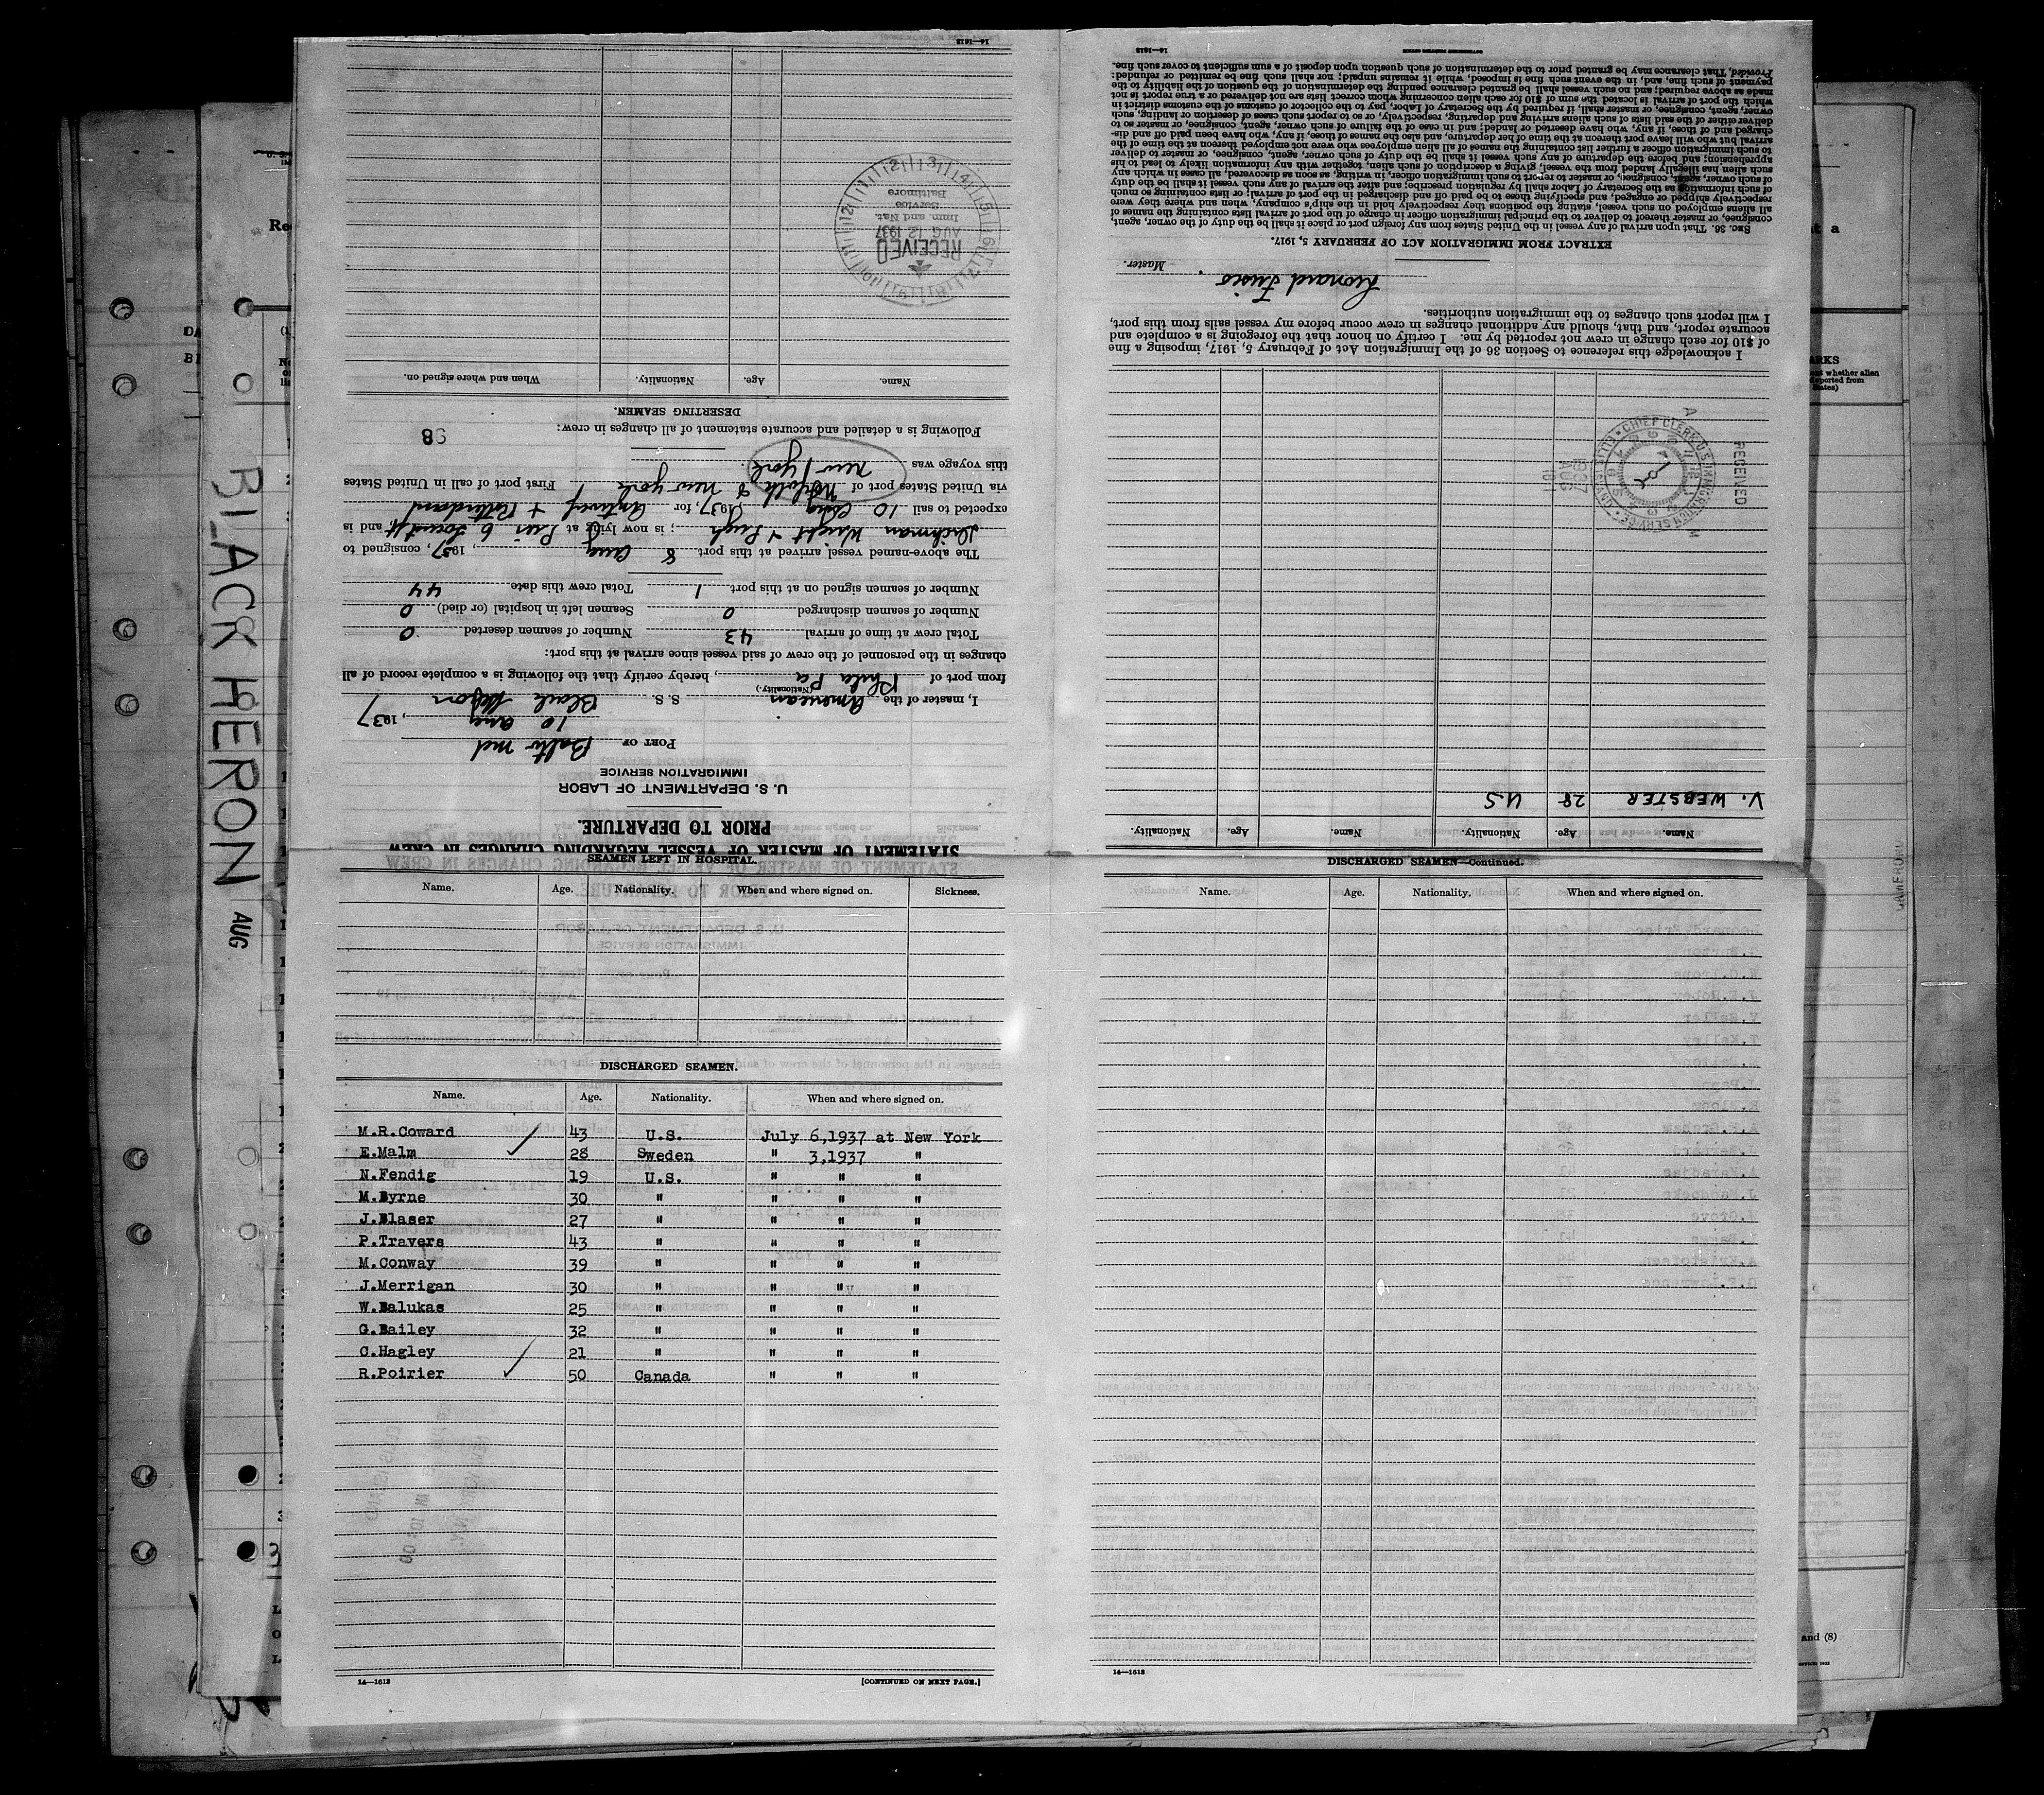 BLACK HERON AUG
STATEMENT OF MASTER OF VESSEL REGARDING CHANGES IN CREW
PRIOR TO DEPARTURE.
U. S. DEPARTMENT OF LABOR
IMMIGRATION SERVICE
PORT OF Balto md
10 Aug, 1937
I, master of the American S. S. Black Heron
(Nationality.)
from port of Phila Pa, hereby certify that the following is a complete record of all
changes in the personnel of the crew of said vessel since arrival at this port:
Total crew at time of arrival 43 Number of seamen deserted 0
Number of seamen discharged 0 Seamen left in hospital (or died) 0
Number of seamen signed on at this port 1 Total crew this date 44
The above-named vessel arrived at this port 8 Aug, 1937, consigned to
Wright & Pugh; is now lying at Pier 6, and is
expected to sail 10 Aug, 1937, for Antwerp + Rotterdam
via United States port of Norfolk & New York First port of call in United States
this voyage was New York.
Following is a detailed and accurate statement of all changes in crew:
98
DESERTING SEAMEN.
Name. Age. Nationality. When and where signed on.
RECEIVED
AUG 12 1937
Imm. and Nat.
Service
Baltimore
14—1613
Name. Age. Nationality. Name. Age. Nationality.
V. WEBSTER 28 U S
RECEIVED
CHIEF CLERK U.S. IMMIGRATION SERVICE
ELLIS ISLAND
1937
AUG
I acknowledge this reference to Section 36 of the Immigration Act of February 5, 1917, imposing a fine
of $10 for each change in crew not reported by me. I certify on honor that the foregoing is a complete and
accurate report, and that, should any additional changes in crew occur before my vessel sails from this port,
I will report such changes to the immigration authorities.
Leonard Frisco
Master.
EXTRACT FROM IMMIGRATION ACT OF FEBRUARY 5, 1917.
SEC. 36. That upon arrival of any vessel in the United States from any foreign port or place it shall be the duty of the owner, agent,
consignee, or master thereof to deliver to the principal immigration officer in charge of the port of arrival lists containing the names of
all aliens employed on such vessel, stating the positions they respectively hold in the ship's company, when and where they were
respectively shipped or engaged, and specifying those to be paid off and discharged in the port of arrival; or lists containing so much
of such information as the Secretary of Labor shall by regulation prescribe; and after the arrival of any such vessel it shall be the duty
of such owner, agent, consignee, or master to report to such immigration officer, in writing, as soon as discovered, all cases in which any
such alien has illegally landed from the vessel, giving a description of such alien, together with any information likely to lead to his
apprehension; and before the departure of any such vessel it shall be the duty of such owner, agent, consignee, or master to deliver
to such immigration officer a further list containing the names of all alien employees who were not employed thereon at the time of the
arrival but who will leave port thereon at the time of her departure, and also the names of those, if any, who have been paid off and dis-
charged and of those, if any, who have deserted or landed; and in case of the failure of such owner, agent, consignee, or master so to
deliver either of the said lists of such aliens arriving and departing, respectively, or so to report such cases of desertion or landing, such
owner, agent, consignee, or master shall, if required by the Secretary of Labor, pay to the collector of customs of the customs district in
which the port of arrival is located the sum of $10 for each alien concerning whom correct lists are not delivered or a true report is not
made as above required; and no such vessel shall be granted clearance pending the determination of the question of the liability to the
payment of such fine, and, in the event such fine is imposed, while it remains unpaid; nor shall such fine be remitted or refunded:
Provided, That clearance may be granted prior to the determination of such question upon deposit of a sum sufficient to cover such fine.
14—1613
SEAMEN LEFT IN HOSPITAL.
Name. Age. Nationality. When and where signed on. Sickness.
DISCHARGED SEAMEN.
Name. Age. Nationality. When and where signed on.
M.R.Coward 43 U.S. July 6,1937 at New York
E.Malm 28 Sweden " 3,1937 "
N.Fendig 19 U.S. " " "
M.Byrne 30 " " " "
J.Blaser 27 " " " "
P.Travers 43 " " " "
M.Conway 39 " " " "
J.Merrigan 30 " " " "
W.Balukas 25 " " " "
G.Bailey 32 " " " "
C.Hagley 21 " " " "
R.Poirier 50 Canada " " "
14—1613 [CONTINUED ON NEXT PAGE.]
DISCHARGED SEAMEN—Continued.
Name. Age. Nationality. When and where signed on.
14—1613
and (8)